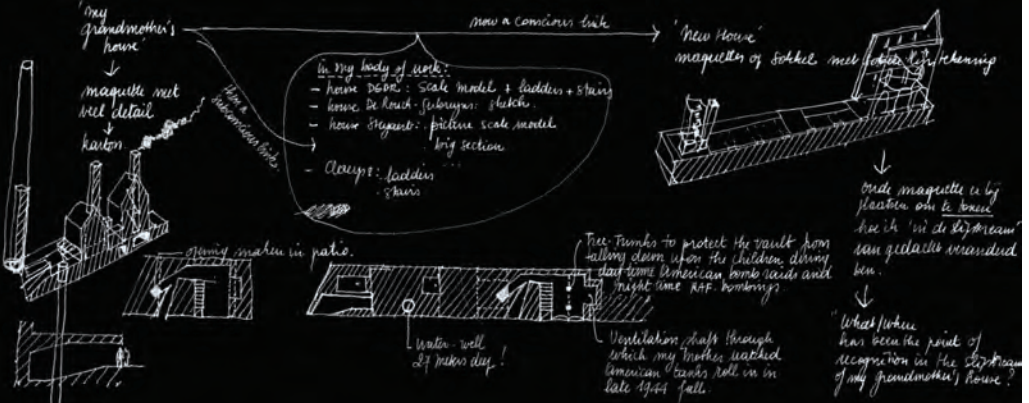 'my
grandmother's
house'
now a conscious link
'New House'
maquette of Sokkel met
maquette met
veel detail
karton
been a
subconscious link
in my body of work:
- house DGDR: scale model + ladders + stairs
- house De Rouck : sketch.
- house Steyaert: picture scale model
big section
- Claeys: ladders
stairs
oude maquette er bij
plaatsen om te tonen
hoe ik 'in de slipstream'
van gedacht veranderd
ben.
"What/when
has been the point of
recognition in the slipstream
of my grandmother's house?
opening maken in patio.
Tree-Trunks to protect the vault from
falling down upon the children during
day time American bomb raids and
night time RAF. bombings.
water-well
27 meters deep!
Ventilation shaft through
which my mother watched
American tanks roll in in
late 1944 fall.